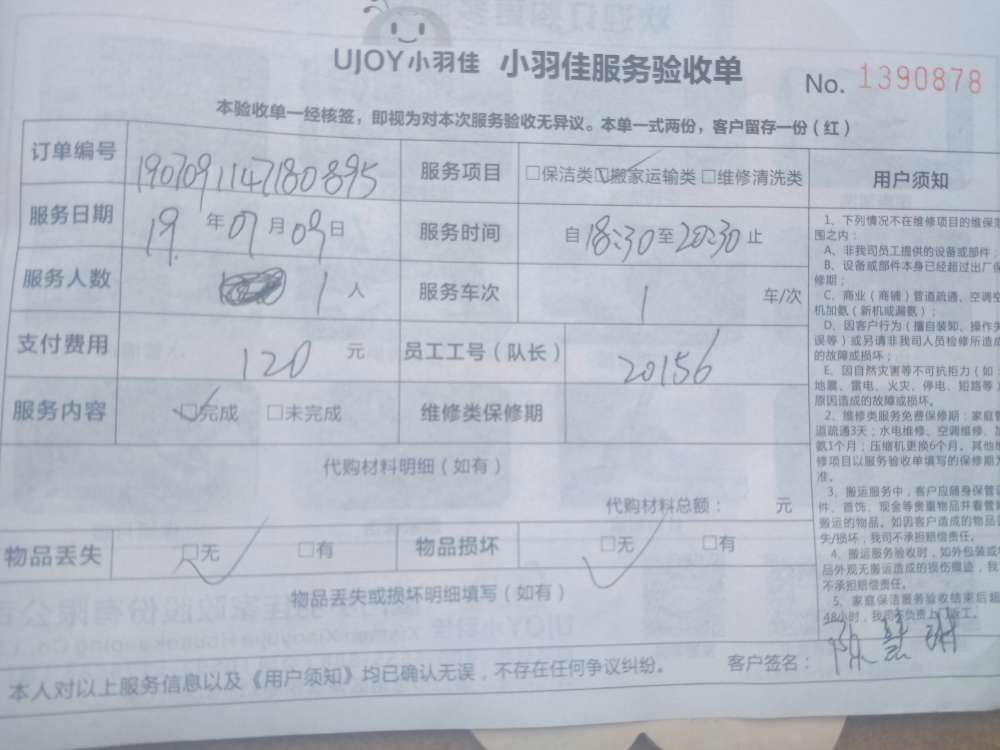 UJOY小羽佳 小羽佳服务验收单 No. 1390878
本验收单一经核签，即视为对本次服务验收无异议。本单一式两份，客户留存一份（红）
订单编号 1907091147180895 服务项目 □保洁类☑搬家运输类□维修清洗类
服务日期 19 年 07 月 09 日 服务时间 自 18:30 至 20:30 止
服务人数 1 人 服务车次 1 车/次
支付费用 120 元 员工工号（队长） 20156
服务内容 ☑完成 □未完成 维修类保修期
代购材料明细（如有）
代购材料总额： 元
物品丢失 ☑无 □有 物品损坏 ☑无 □有
物品丢失或损坏明细填写（如有）
客户签名：
本人对以上服务信息以及《用户须知》均已确认无误，不存在任何争议纠纷。
用户须知
1、下列情况不在维修项目的维保范
围之内：
A、非我司员工提供的设备或部件；
B、设备或部件本身已经超过出厂保
修期；
C、商业（商铺）管道疏通、空调空
机加氨（新机或漏氨）；
D、因客户行为（擅自装卸、操作失
误等）或另请非我司人员检修所造成
的故障或损坏；
E、因自然灾害等不可抗拒力（如：
地震、雷电、火灾、停电、短路等
原因造成的故障或损坏。
2、维修类服务免费保修期：家庭管
道疏通3天；水电维修、空调维修、加
氨1个月；压缩机更换6个月。其他维
修项目以服务验收单填写的保修期为
准。
3、搬运服务中，客户应随身保管证
件、首饰、现金等贵重物品并看管
搬运的物品。如因客户造成的物品丢
失/损坏，我司不承担赔偿责任。
4、搬运服务验收时，如外包装或物
品外观无搬运造成的损伤痕迹，我
不承担赔偿责任。
5、家庭保洁服务验收结束后超
48小时，我司不负责上门返工。